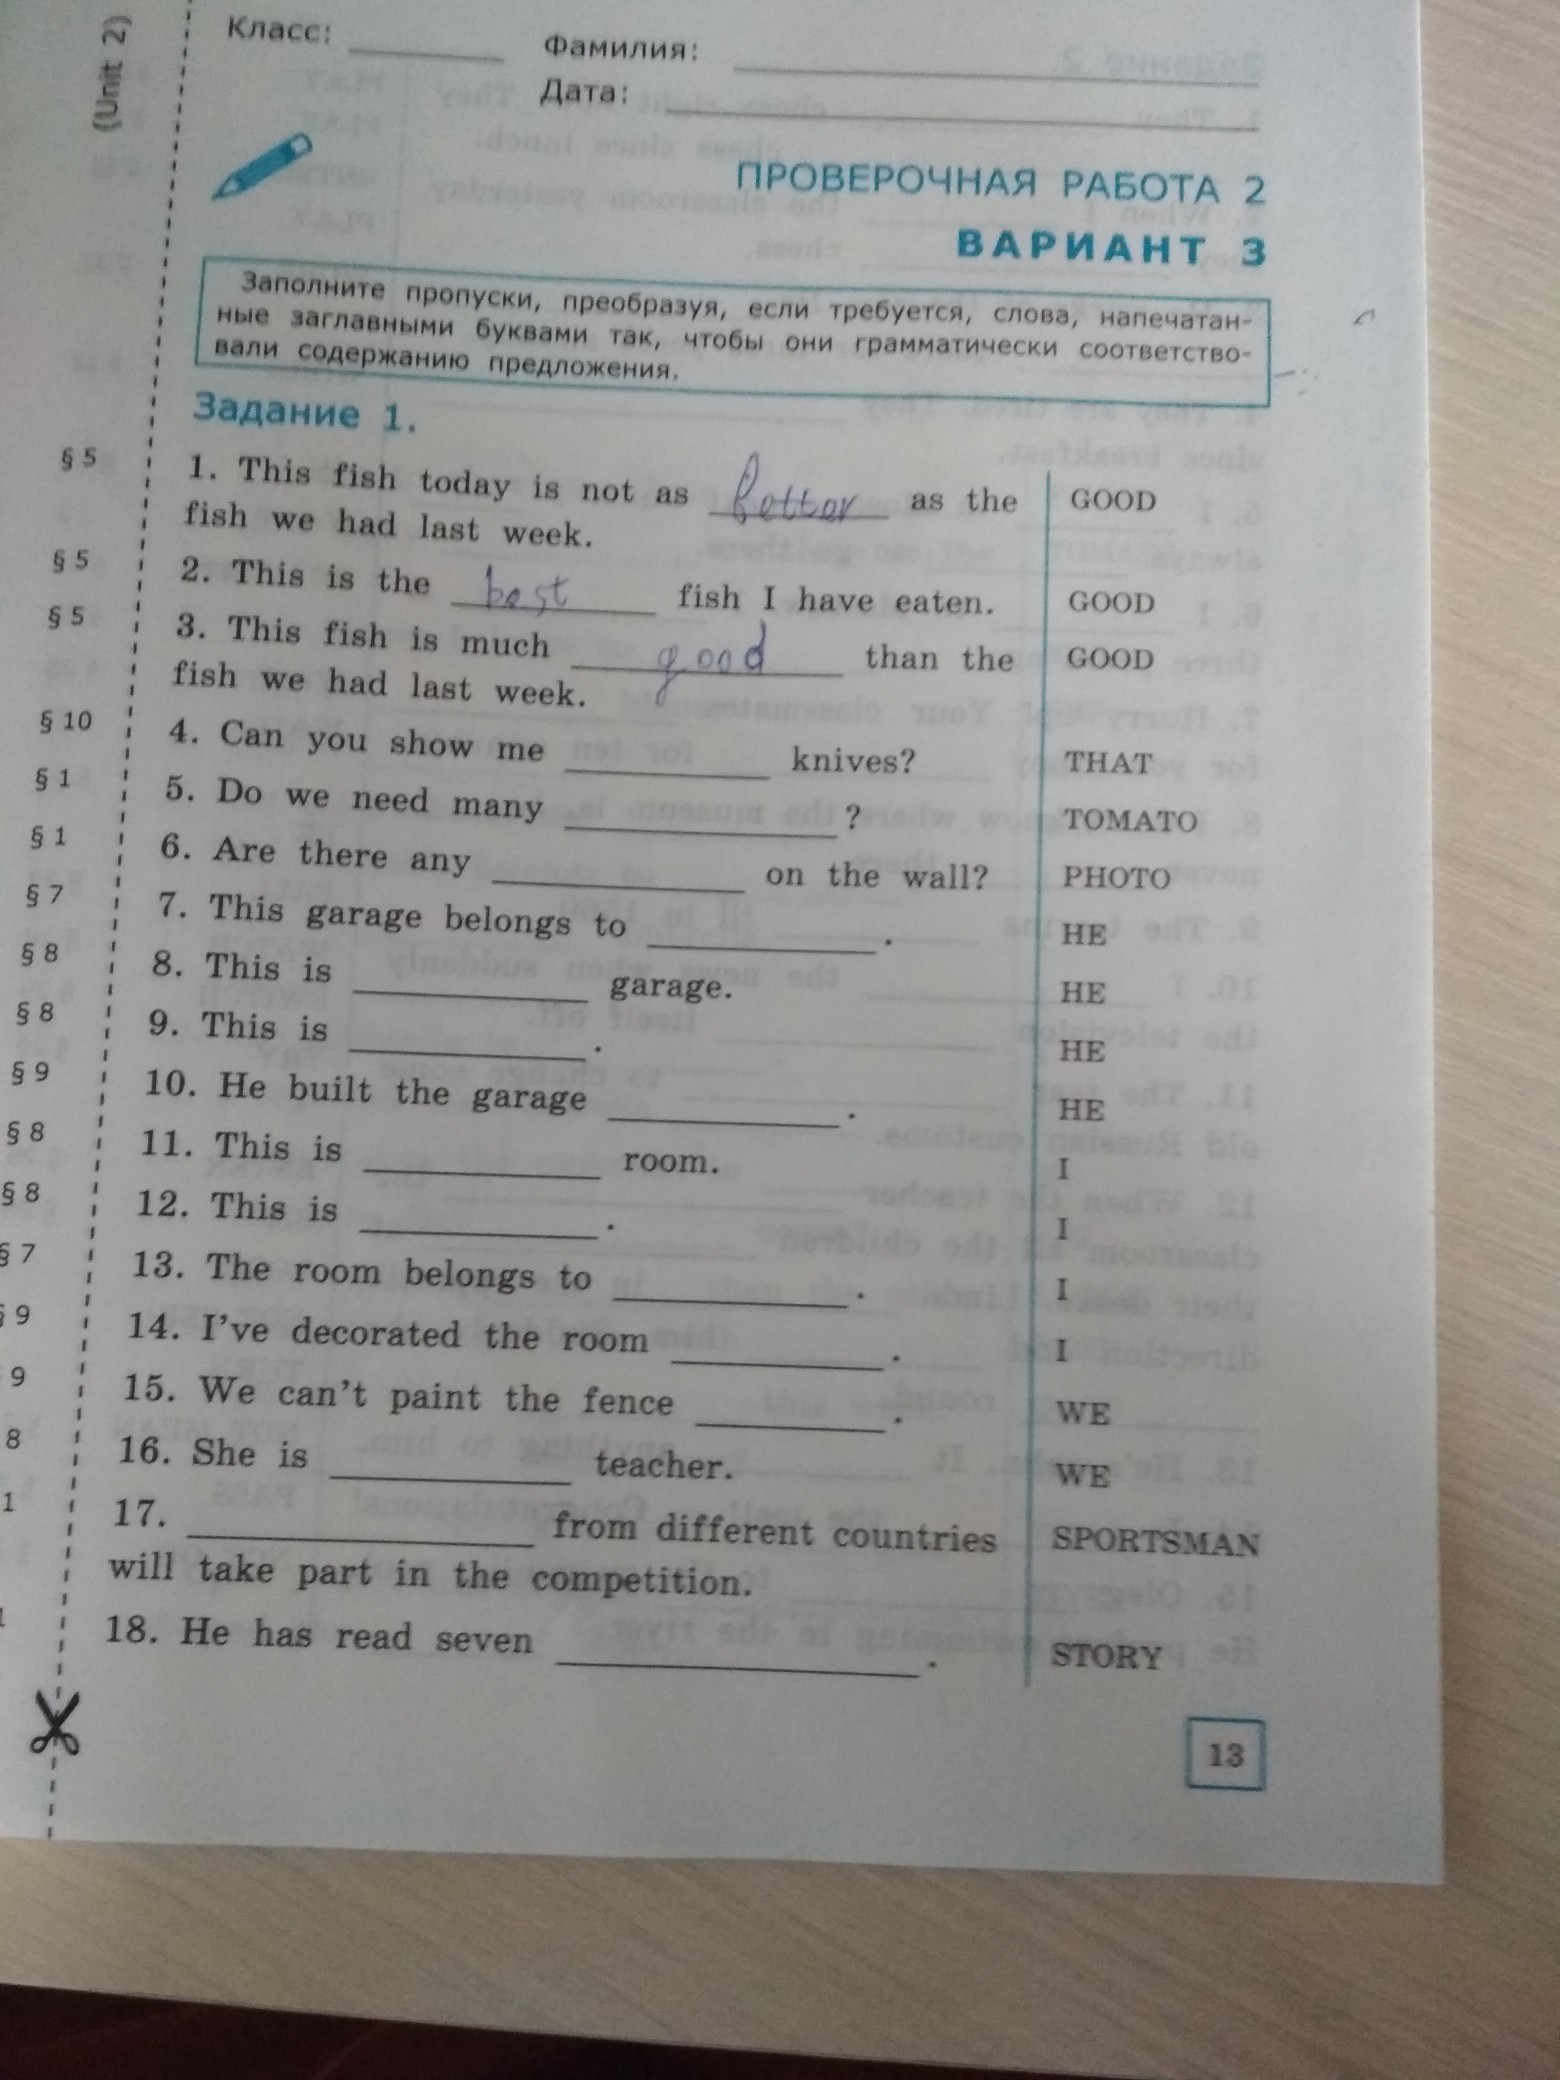 (Unit 2)
Класс:
Фамилия:
Дата:
ПРОВЕРОЧНАЯ РАБОТА 2
ВАРИАНТ 3
Заполните пропуски, преобразуя, если требуется, слова, напечатан-
ные заглавными буквами так, чтобы они грамматически соответство-
вали содержанию предложения.
Задание 1.
§ 5 1. This fish today is not as better as the GOOD
fish we had last week.
§ 5 2. This is the best fish I have eaten. GOOD
§ 5 3. This fish is much good than the GOOD
fish we had last week.
§ 10 4. Can you show me knives? THAT
§ 1 5. Do we need many ? TOMATO
§ 1 6. Are there any on the wall? PHOTO
§ 7 7. This garage belongs to . HE
§ 8 8. This is garage. HE
§ 8 9. This is . HE
§ 9 10. He built the garage . HE
§ 8 11. This is room. I
§ 8 12. This is . I
§ 7 13. The room belongs to . I
§ 9 14. I've decorated the room . I
9 15. We can't paint the fence . WE
8 16. She is teacher. WE
1 17. from different countries SPORTSMAN
will take part in the competition.
18. He has read seven . STORY
13